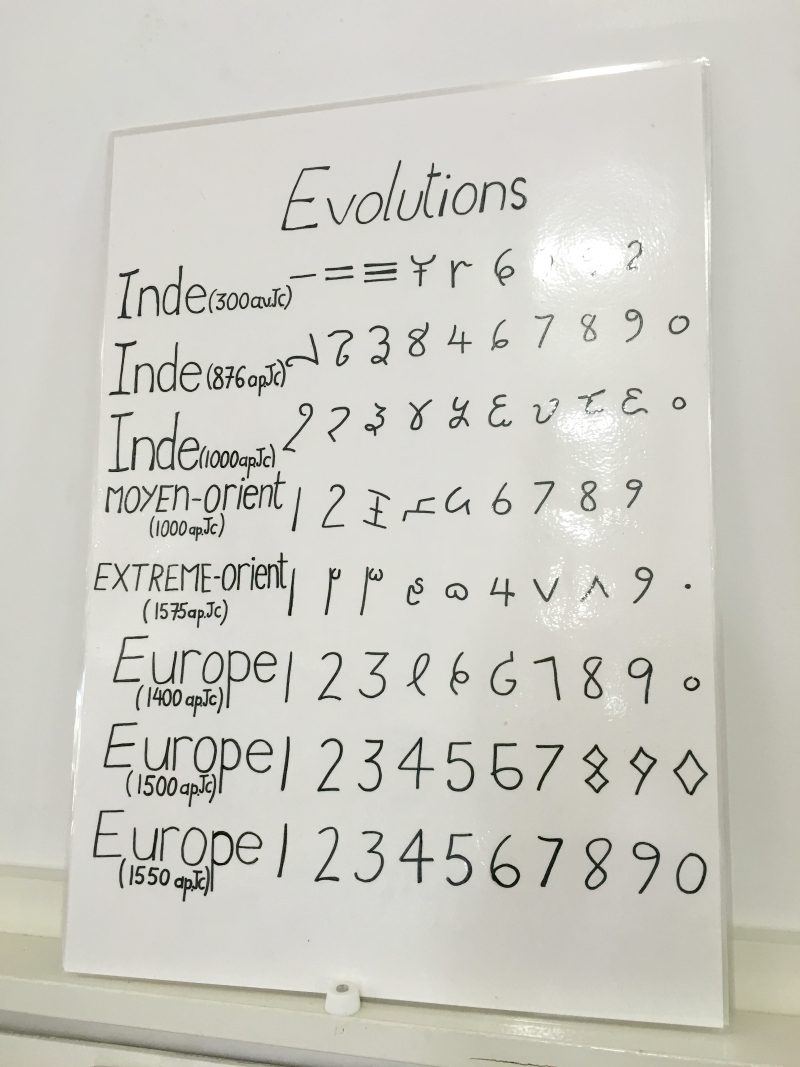 Evolutions
Inde (300 av.Jc) − = ≡ Ұ r 6 ? 
Inde (876 ap.Jc) 3 8 4 6 7 8 9 0
Inde (1000 ap.Jc) 2 २ ३ ४ ५ ६ ७ ८ ६ ०
MOYEN-orient (1000 ap.Jc) 1 2 6 7 8 9
EXTREME-orient (1575 ap.Jc) ١ ٢ ٣ 4 ٧ ٨ 9 ·
Europe (1400 ap.Jc) 1 2 3 ℓ 6 7 8 9 0
Europe (1500 ap.Jc) 1 2 3 4 5 6 7 8 9 0
Europe (1550 ap.Jc) 1 2 3 4 5 6 7 8 9 0